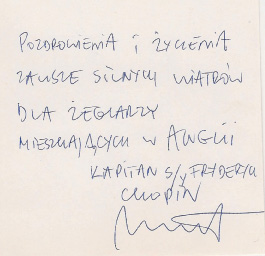 POZDROWIENIA I ŻYCZENIA
ZAWSZE SILNYCH WIATRÓW
DLA ŻEGLARZY
MIESZKAJĄCYCH W ANGLII
KAPITAN S/Y FRYDERYK
CHOPIN